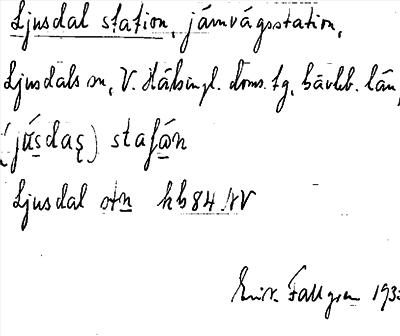 Ljusdal station, järnvägsstation,
Ljusdals sn, V. Hälsingl. doms. tg, Gävleb. län,
(jus̲das̨) stas̲ʃan
Ljusdal stn hb 84 NV
Erik Fallgren 193